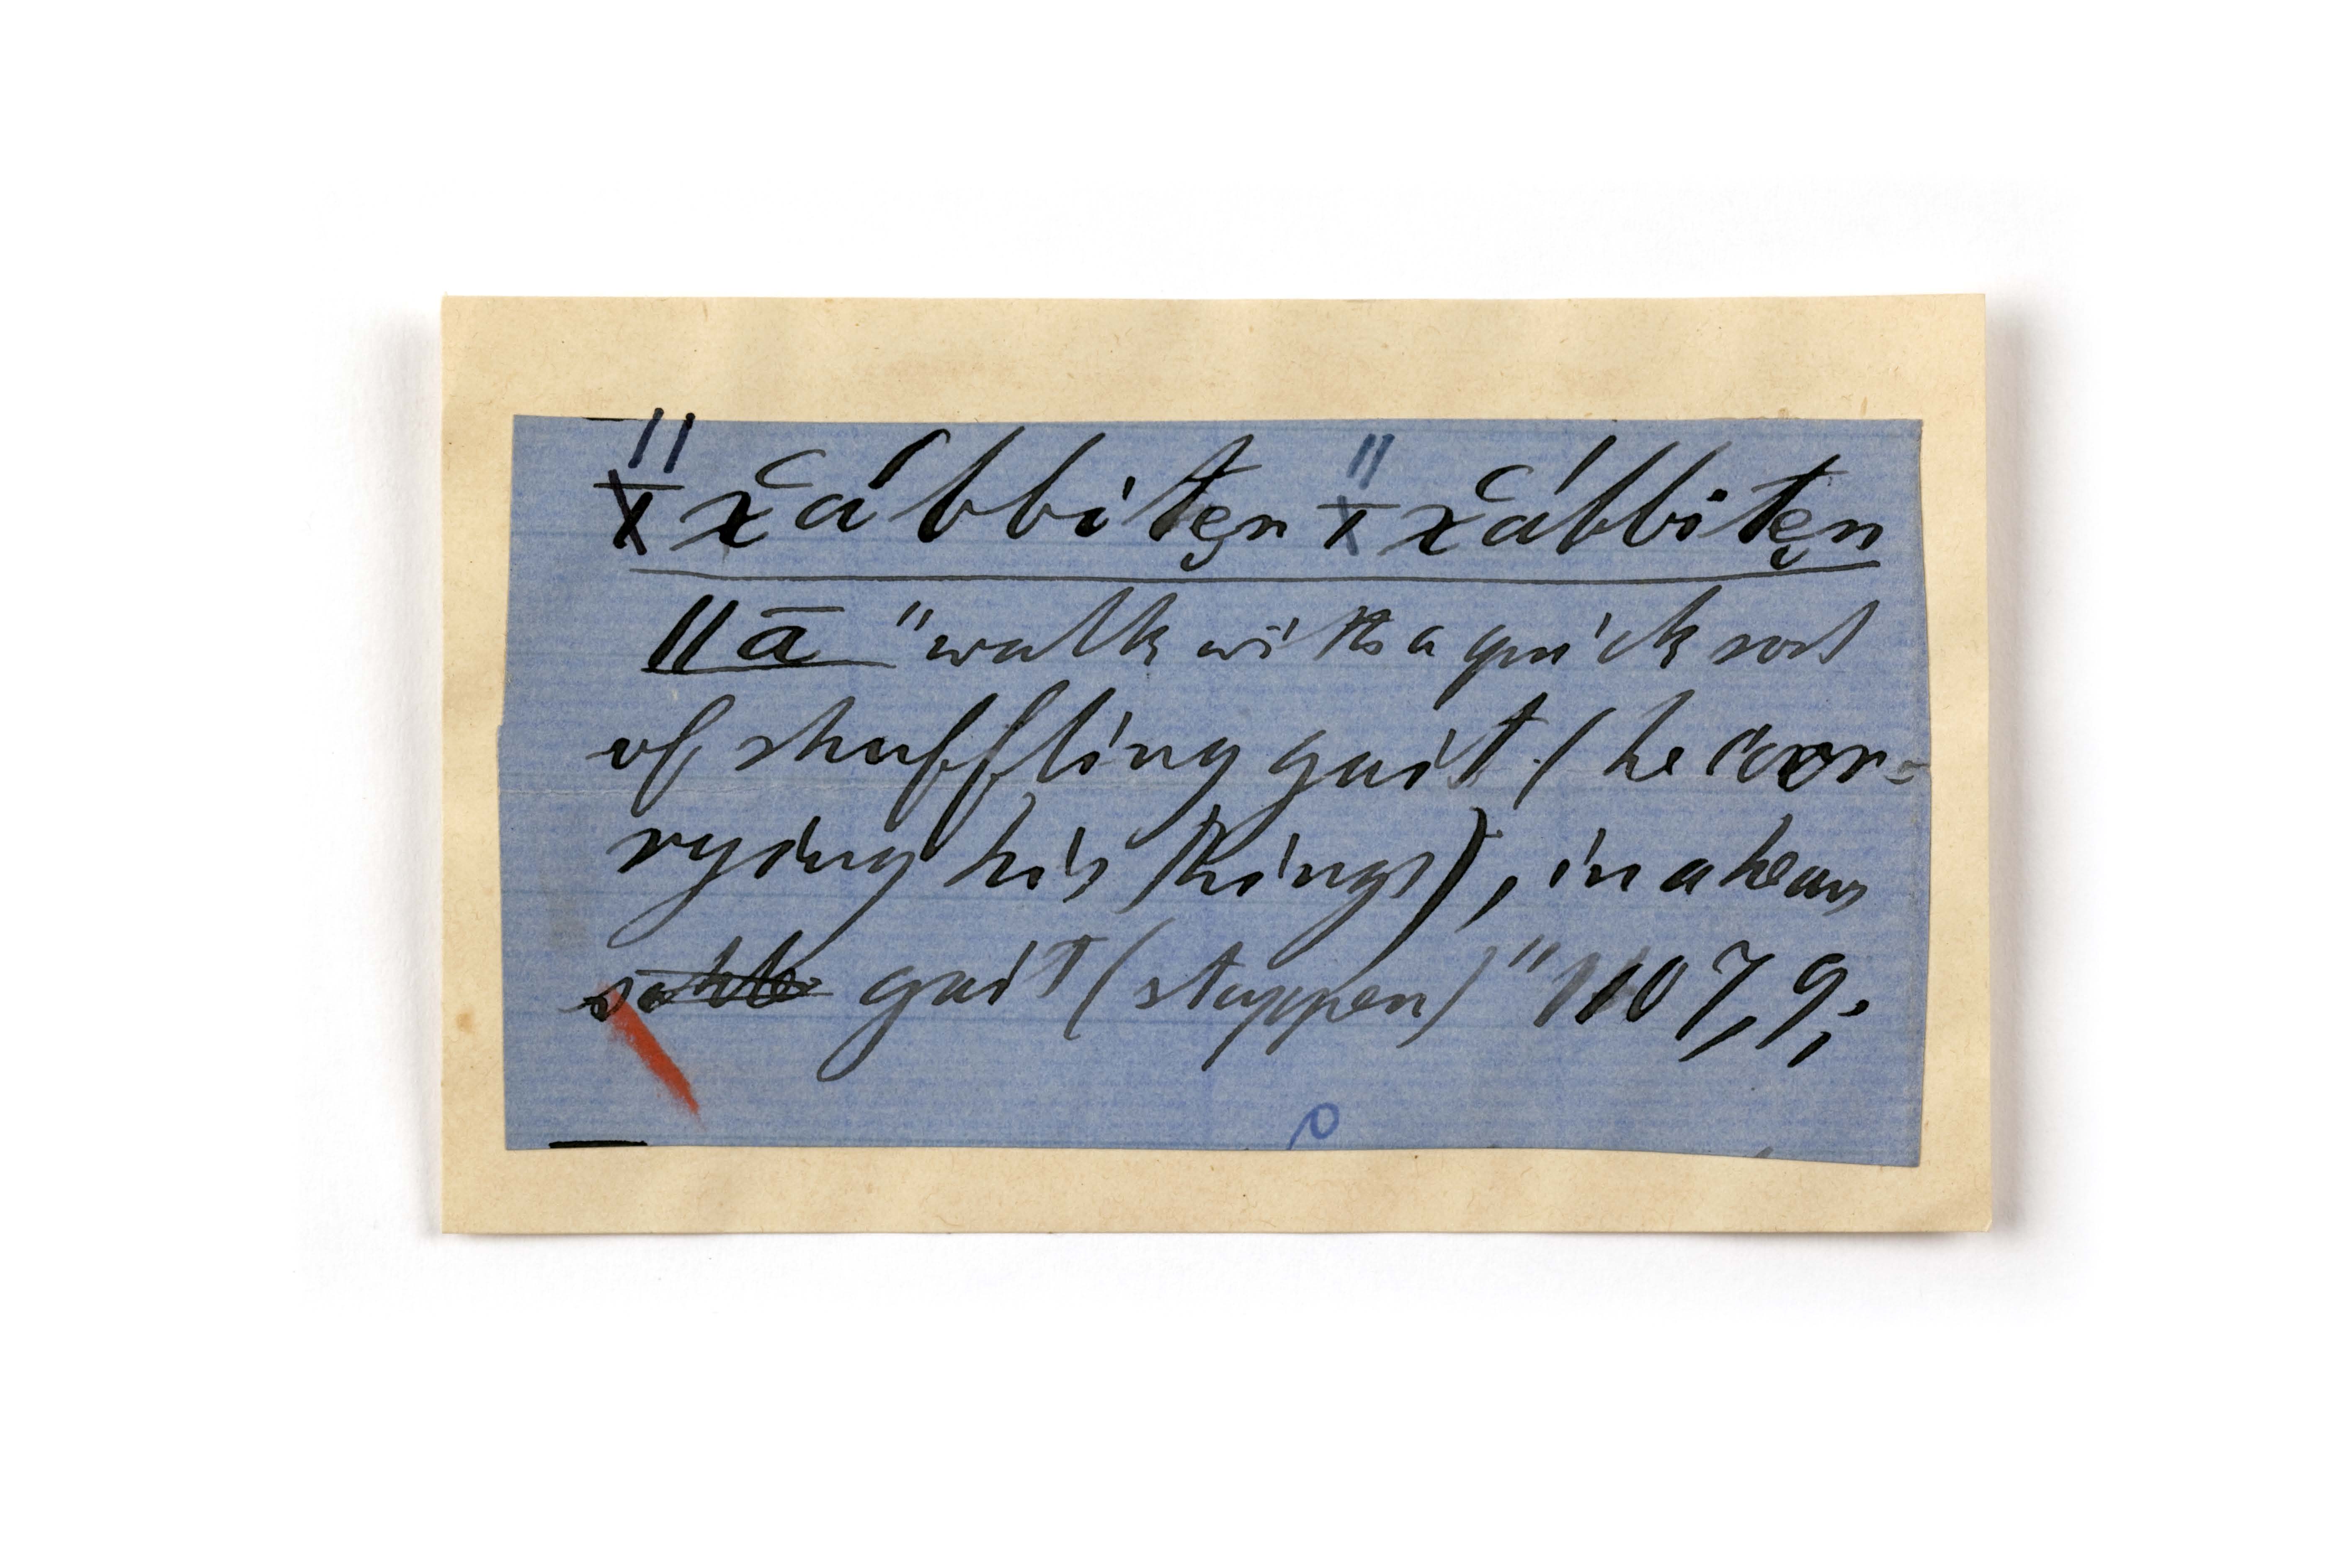 ǁx̌ábbitẹn ǁx̌ábbitẹn
ǁā "walk with a quick sort
of shuffling gait (he car-
rying his things), in a heavy
gait (stappen)" 1107,9;